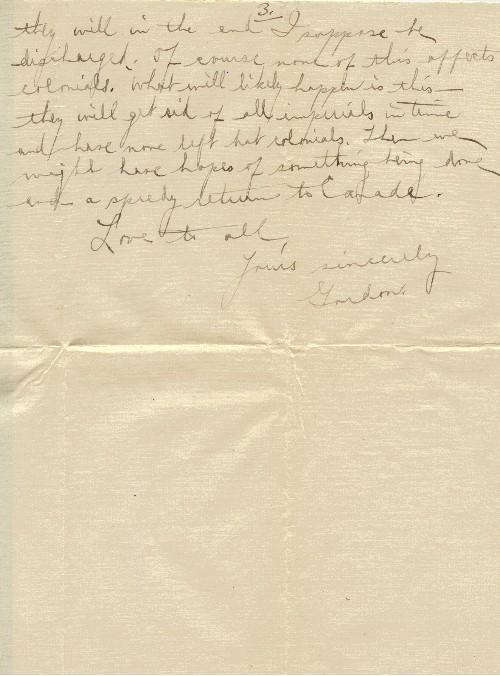 3.
they will in the end I suppose be
discharged. Of course none of this affects
colonials. What will likely happen is this –
they will get rid of all imperials in time
and have none left but colonials. Then we
might have hopes of something being done
and a speedy return to Canada.
Love to all
Yours sincerely
Gordon.